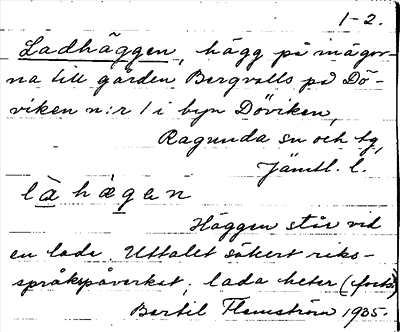 1-2.
Ladhäggen, hägg på mägor-
na till gården Bergvalls på Dö-
viken n:r 1 i byn Döviken,
Ragunda sn och tg,
Jämtl. l.
là hǽgen
Häggen står vid
en lada. Uttalet säkert riks-
språkspåverkat; lada heter (forts.)
Bertil Flemström 1935.